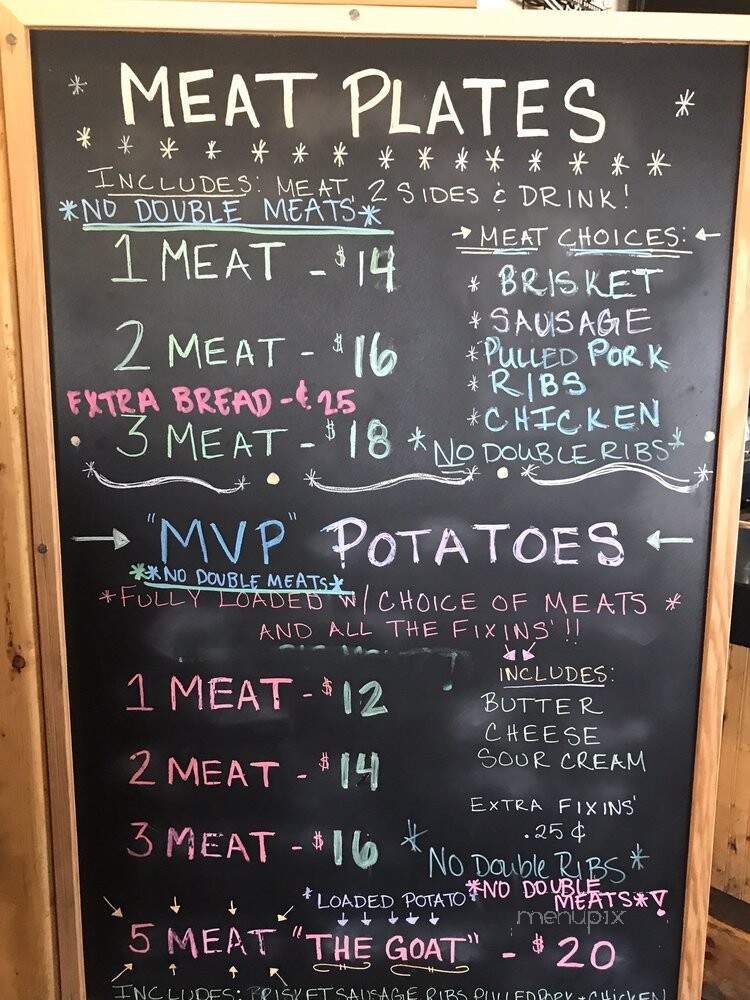 MEAT PLATES
INCLUDES: MEAT, 2 SIDES & DRINK!
*NO DOUBLE MEATS*
→ MEAT CHOICES: ←
1 MEAT - $14
* BRISKET
* SAUSAGE
2 MEAT - $16
* PULLED PORK
* RIBS
EXTRA BREAD - ¢25
* CHICKEN
3 MEAT - $18
*NO DOUBLE RIBS*
→ "MVP" POTATOES ←
**NO DOUBLE MEATS*
*FULLY LOADED W/ CHOICE OF MEATS *
AND ALL THE FIXINS' !!
INCLUDES:
1 MEAT - $12
BUTTER
CHEESE
SOUR CREAM
2 MEAT - $14
EXTRA FIXINS'
.25¢
3 MEAT - $16
*NO DOUBLE RIBS*
*LOADED POTATO*
*NO DOUBLE MEATS*!
menupix
5 MEAT "THE GOAT" - $20
INCLUDES: BRISKET SAUSAGE RIBS PULLED PORK + CHICKEN